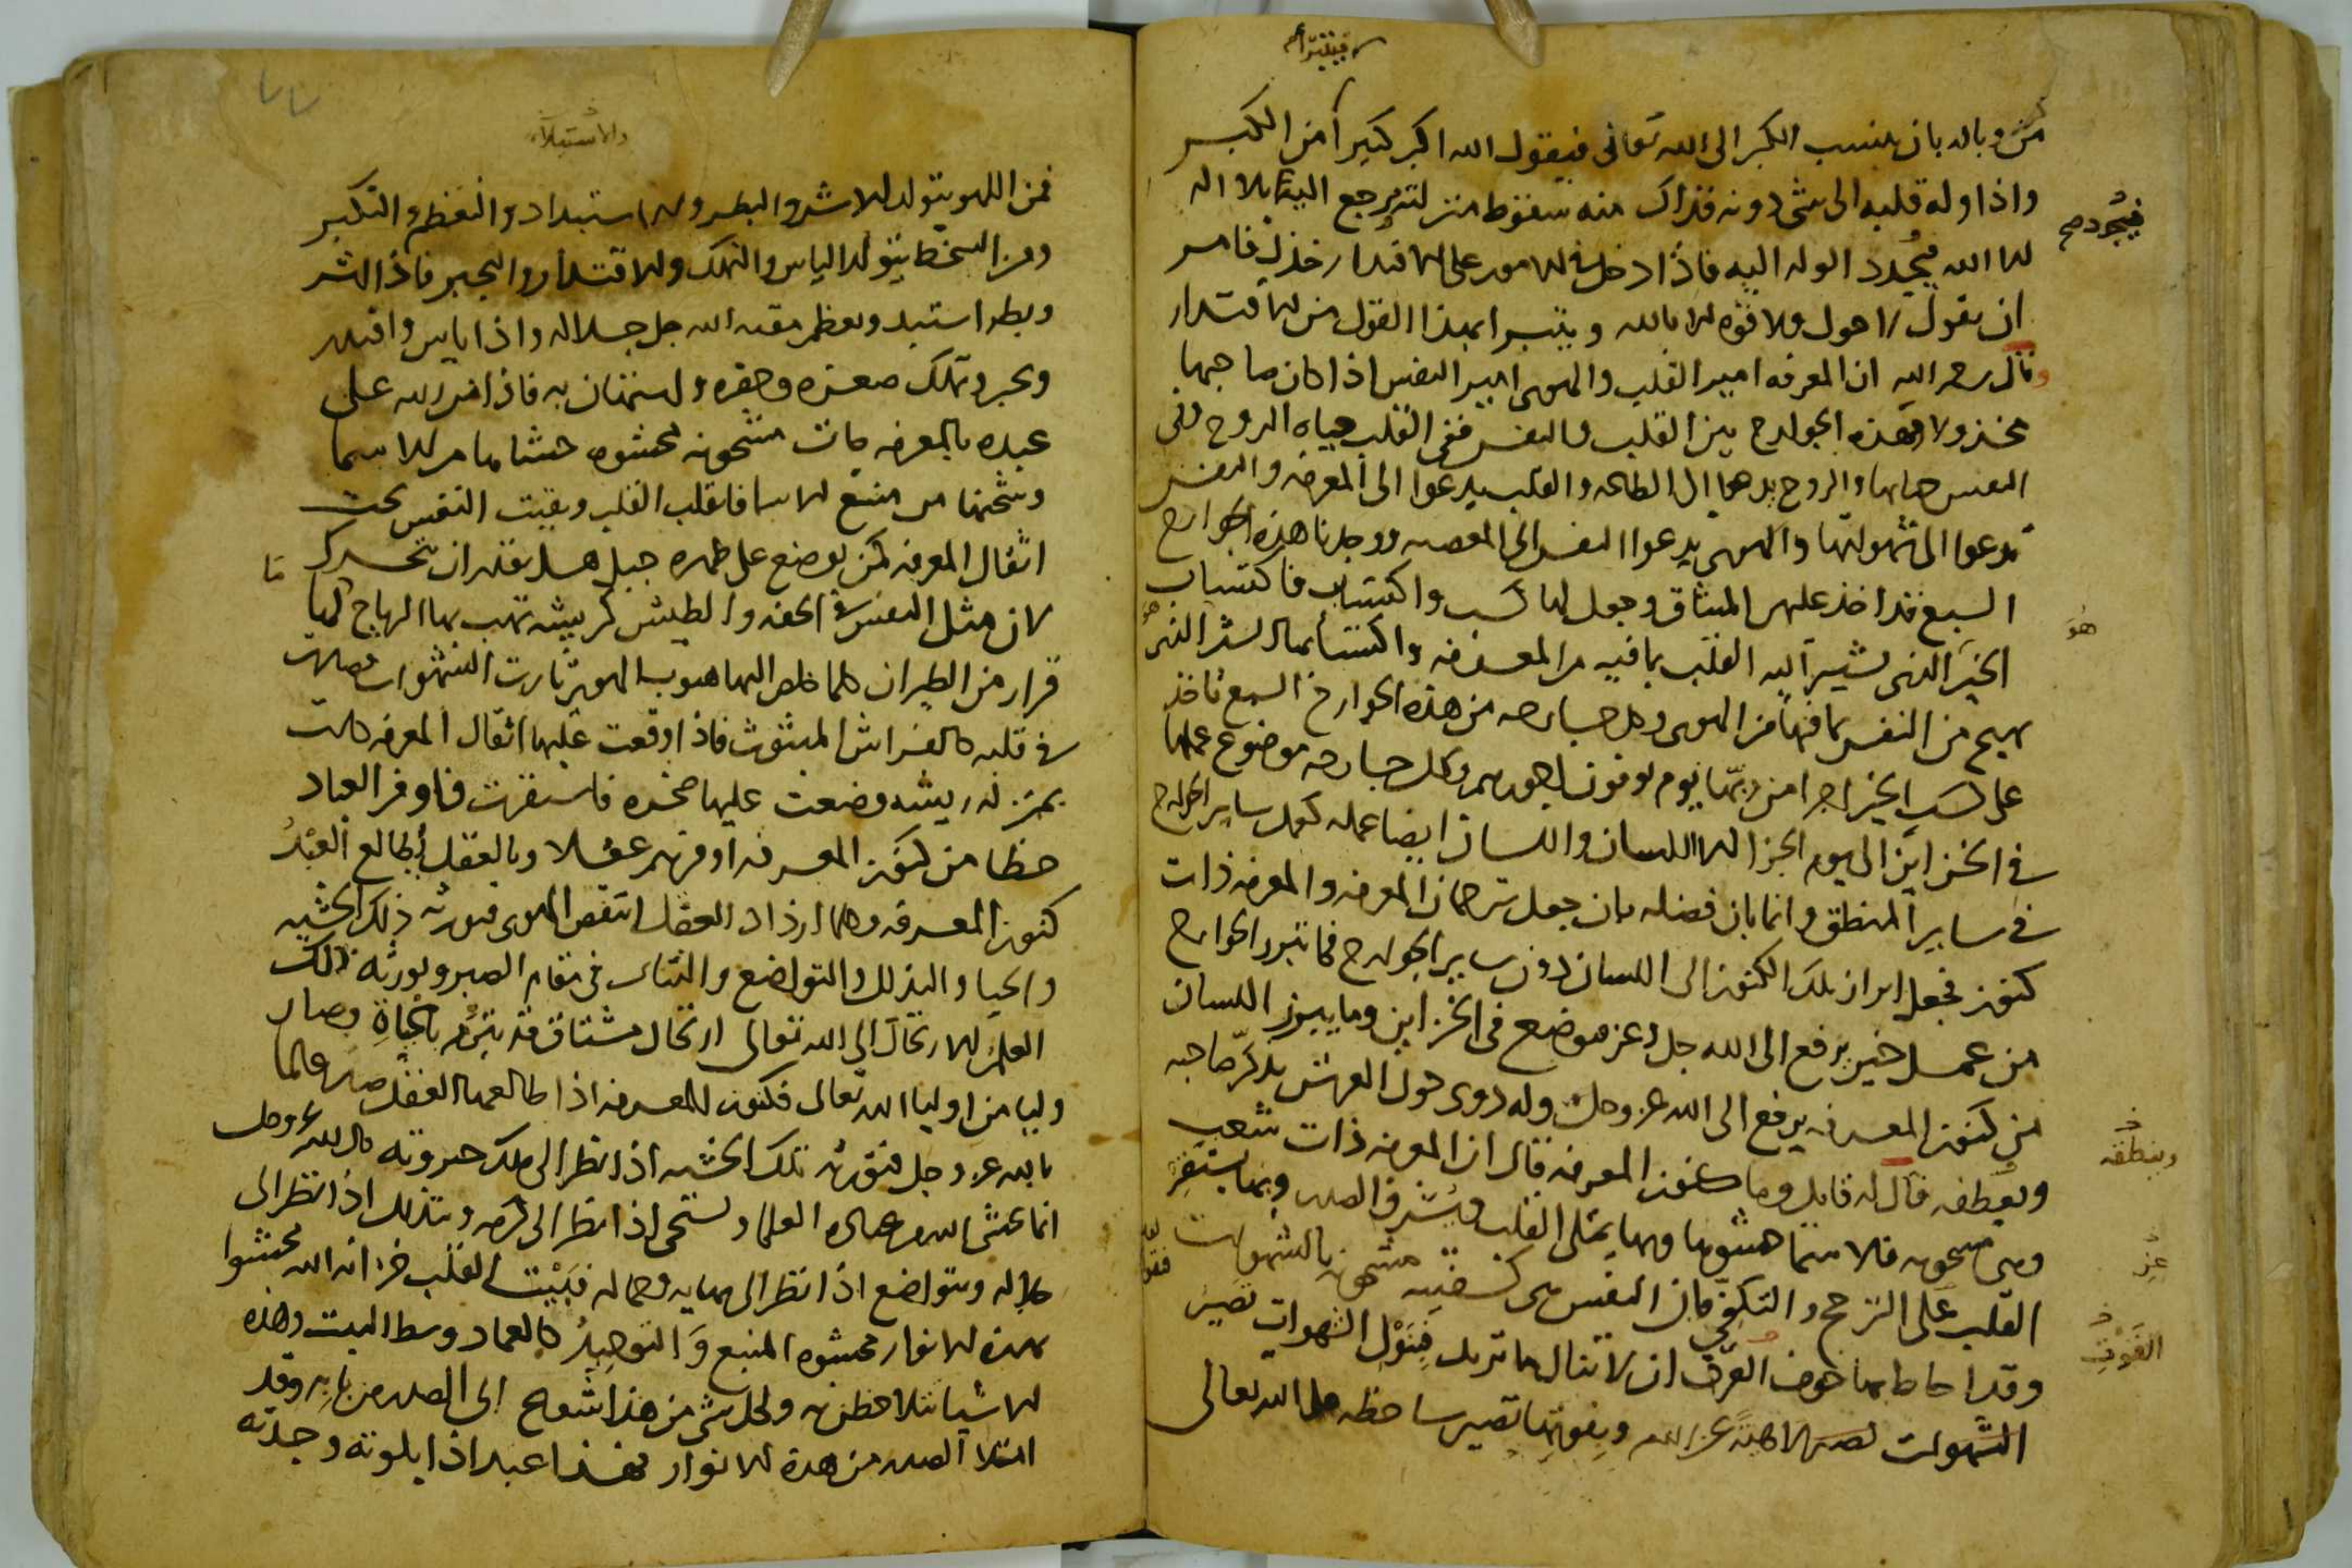 فيتبرأ
من وباله بان ينسب الكبر الى الله تعالى فيقول الله اكبر كبيرا من الكبر
واذا وله قلبه الى شي دونه فذاك منه سقوط منزلته يرجع اليه بلا اله
الا الله فيجدد الوله اليه فاذا دخل في الامور على الاقتدار خذل فامر
ان يقول لا حول ولا قوة الا بالله ويتبرا بهذا القول من الاقتدار
وقال رحمه الله ان المعرفه امير القلب والهوى امير النفس اذا كان صاحبها
مخذولا وهذه الجوارح بين القلب والنفس ففي القلب حياه الروح وفي
النفس حياتها والروح يدعوا الى الطاعه والقلب يدعوا الى المعرفه والنفس
تدعوا الى شهواتها والهوى يدعوا النفس الى المعصيه ووجدنا هذه الجوارح
السبع قد اخذ عليهن الميثاق وجعل لها كسب واكتساب فاكتساب
الخير الذي يشير اليه القلب بما فيه من المعرفه واكتسابها الشر الذي
يهيج من النفس بما فيها من الهوى وكل جارحه من هذه الجوارح السبع تاخذ
على كسب الخير اجرا من ربها يوم يوفون اجورهم وكل جارحه موضوع عملها
في الخزاين الى يوم الجزا الا اللسان واللسان ايضا عمله كعمل ساير الجوارح
في ساير المنطق وانما بان فضله بان جعل ترجمان المعرفه والمعرفه ذات
كنوز فجعل ابراز تلك الكنوز الى اللسان دون ساير الجوارح فما تبرز الجوارح
من عمل خير يرفع الى الله جل وعز موضع في الخزاين وما يبرز اللسان
من كنوز المعرفه يرفع الى الله عز وجل وله دوي حول العرش يذكر صاحبه
ويعطفه قال له قايل وما كنوز المعرفه قال ان المعرفه ذات شعب
وهي مشحونه فالاسما حشوها وبها يمتلي القلب ويشرق الصدر وبها يستقر
القلب على الترجح والتكفي فان النفس هي كسفينه مشحونه بالشهوات
وقد احاط بها خوف الغرق ان لا تنال ما تريد فبنول الشهوات تصير
الشهوات وبفوتها تصير ساخطه على الله تعالى
فيجرد
هو
وينطقه
عز
الفوت
والاستبداد
فمن اللهو يتولد الاشر والبطر والاستبداد والتعظم والتكبر
ومن السخط يتولد الياس والتملك والاقتدار والتجبر فاذا اشر
وبطر استبد وتعظم مقته الله جل جلاله واذا يايس واقتدر
وتجبر وتملك صغره وحقره واستهان به فاذا من الله على
عبده بالمعرفه جات مشحونه محشوه حشاها من الاسما
وشحنها من منبع الاسما فانقلب القلب وبقيت النفس تحت
اثقال المعرفه كمن يوضع على ظهره جبل هل يقدر ان يتحرك
لان مثل النفس في الخفه والطيش كريشه تهب بها الرياح لها
قرار من الطيران كلما خلص اليها هبوب الهوى ثارت الشهوات فصارت
في قلبه كالفراش المبثوث فاذا وقعت عليها اثقال المعرفه كانت
بمنزله ريشه وضعت عليها صخره فاستقرت فاوفر العباد
حظا من كنوز المعرفه اوفرهم عقلا وبالعقل يطالع العبد
كنوز المعرفه وكلما ازداد العقل انتقص الهوى فيورثه ذلك الخشيه
والحيا والبذل والتواضع والثبات في مقام الصبر ويورثه ذلك
العلم الارتحال الى الله تعالى ارتحال مشتاق قد تبرم بالحياة وصار
وليا من اوليا الله تعالى فكنوز المعرفه اذا طالعها العقل صار عالما
بالله عز وجل فتورثه تلك الخشيه اذا نظر الى ملك جبروته قال الله عز وجل
انما يخشى الله من عباده العلما ويستحي اذا نظر الى كرمه ويتذلل اذا نظر الى
جلاله ويتواضع اذا نظر الى بهايه وجماله فبيت القلب خزانه الله محشوا
بهذه الانوار محشوه المنبع والتوحيد كالعماد وسط البيت وهذه
الاشيا تتلاحظن ولكل شي من هذا شعاع الى الصدر من بابه وقد
امتلا الصدر من هذه الانوار فهذا عبد اذا بلوته وجدته